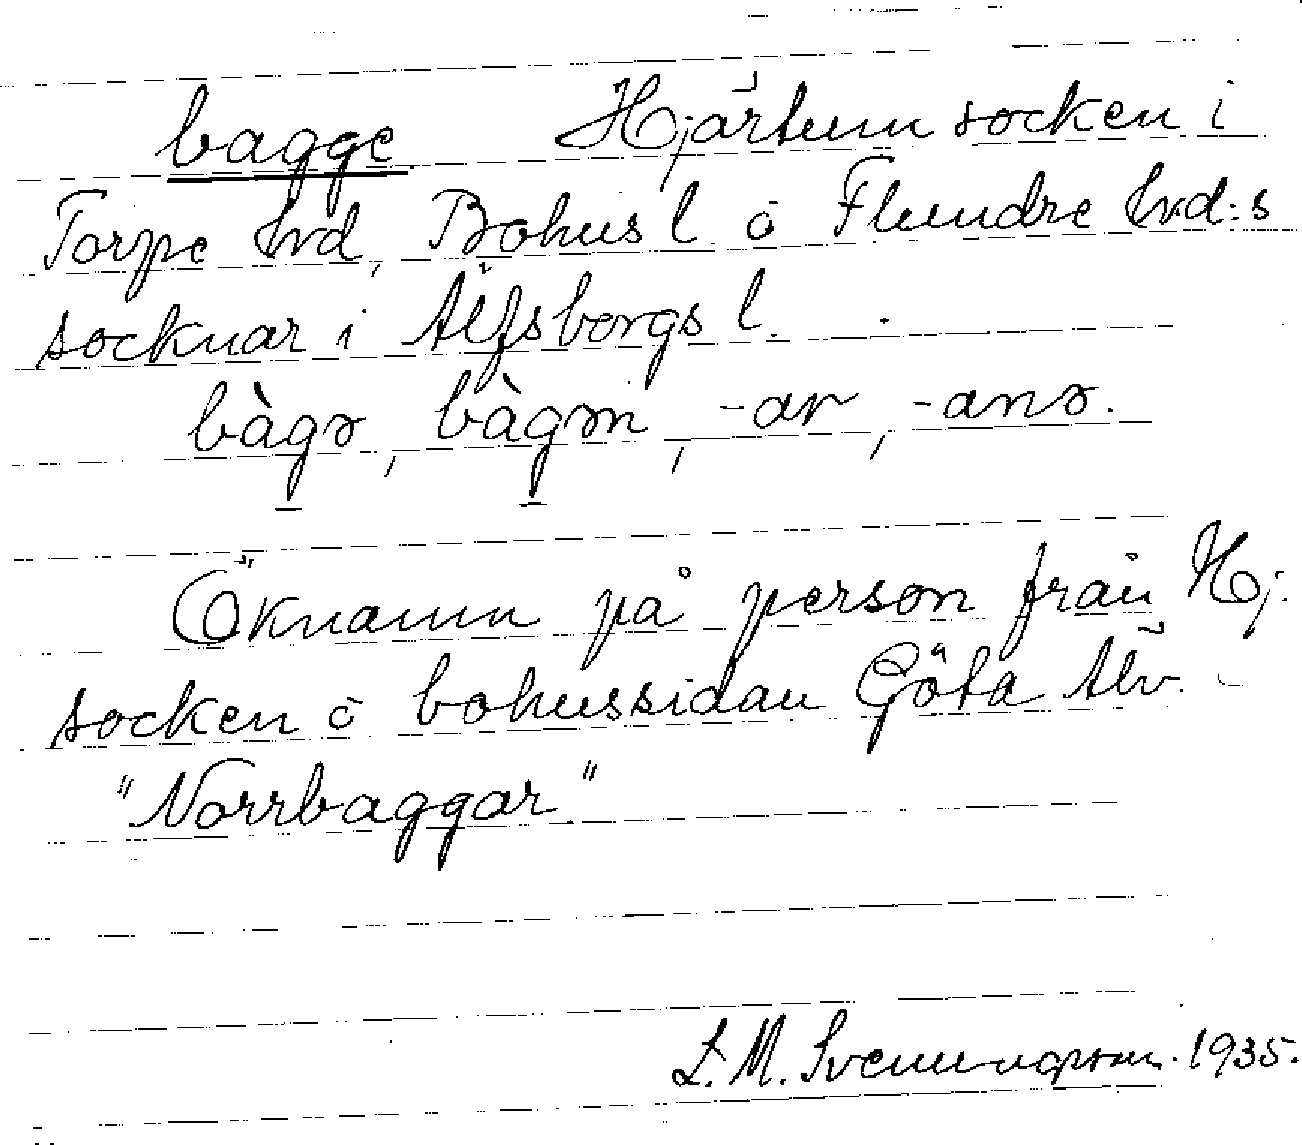 bagge Hjärtum socken i
Torpe hrd, Bohus l. o Flundre hrd:s
socknar i Älfsborgs l.
bàgə, bàgən, -ar, -anə.
Öknamn på person från Hj.
socken o bohussidan Göta Älv.
"Norrbaggar"
L. M. Svenungsson. 1935.